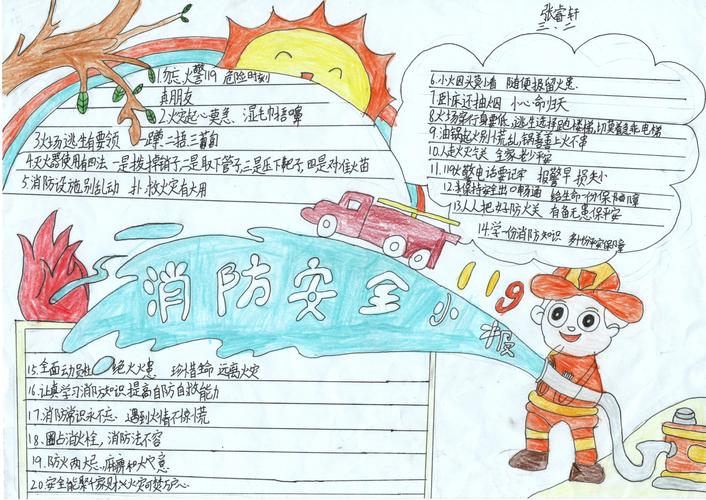 张睿轩
三、二
1.标火警119 危险时刻
真朋友
2.火灾起心莫急 湿毛巾捂嘴
3火场逃生有要领 一蹲二捂三匍匐
4灭火器使用有四法 一是拔掉销子,二是取下管子,三是压下靶子,四是对准火苗
5消防设施别乱动 扑救火灾有大用
6.小火回头莫小看 随便损留火患
7卧床还抽烟 小心命归天
8火场穿行身要低,逃生选择跑楼梯,切莫着急乘电梯
9.油锅起火别慌乱 锅盖盖上火不窜
10.人走火关 全家老少平安
11.119火警电话要记牢 报警早损失小
12保持安全出口畅通 给生命一份保障
13人人把好防火关 有备无患保平安
14.学一份消防知识 多一份平安保障
消防安全小报
119
15.全面动员 绝火患 珍惜生命 远离火灾
16.认真学习消防知识提高自防自救能力
17.消防常识永不忘 遇到火情不惊慌
18.圈占消火栓,消防法不容
19.防火两大忌,麻痹和大意
20安全能聚个家 火灾可焚万心